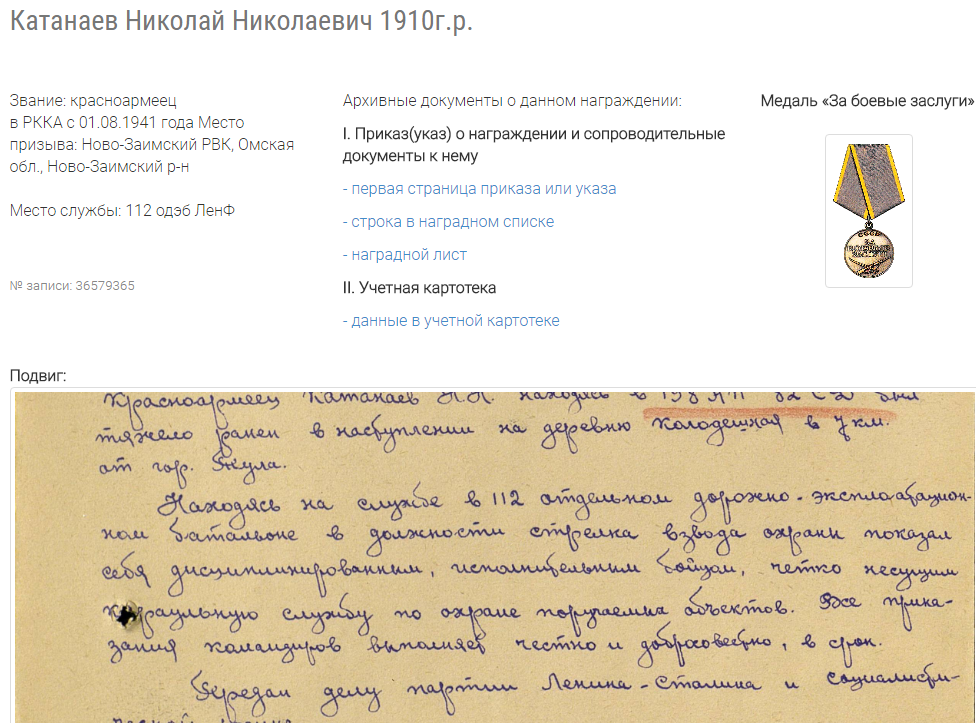 Катанаев Николай Николаевич 1910г.р.
Звание: красноармеец
в РККА с 01.08.1941 года Место
призыва: Ново-Заимский РВК, Омская
обл., Ново-Заимский р-н
Место службы: 112 одэб ЛенФ
№ записи: 36579365
Архивные документы о данном награждении:
I. Приказ(указ) о награждении и сопроводительные
документы к нему
- первая страница приказа или указа
- строка в наградном списке
- наградной лист
II. Учетная картотека
- данные в учетной картотеке
Медаль «За боевые заслуги»
Подвиг:
Красноармеец Катанаев Н.Н. находясь в 82 СД был
тяжело ранен в наступлении на деревню в 7 км.
от гор.
Находясь на службе в 112 отдельном дорожно-эксплоатацион-
ном батальоне в должности стрелка взвода охраны показал
себя дисциплинированным, исполнительным бойцом, четко несущим
караульную службу по охране поручаемых объектов. Все прика-
зания командиров выполняет честно и добросовестно, в срок.
Предан делу партии Ленина-Сталина и социалисти-